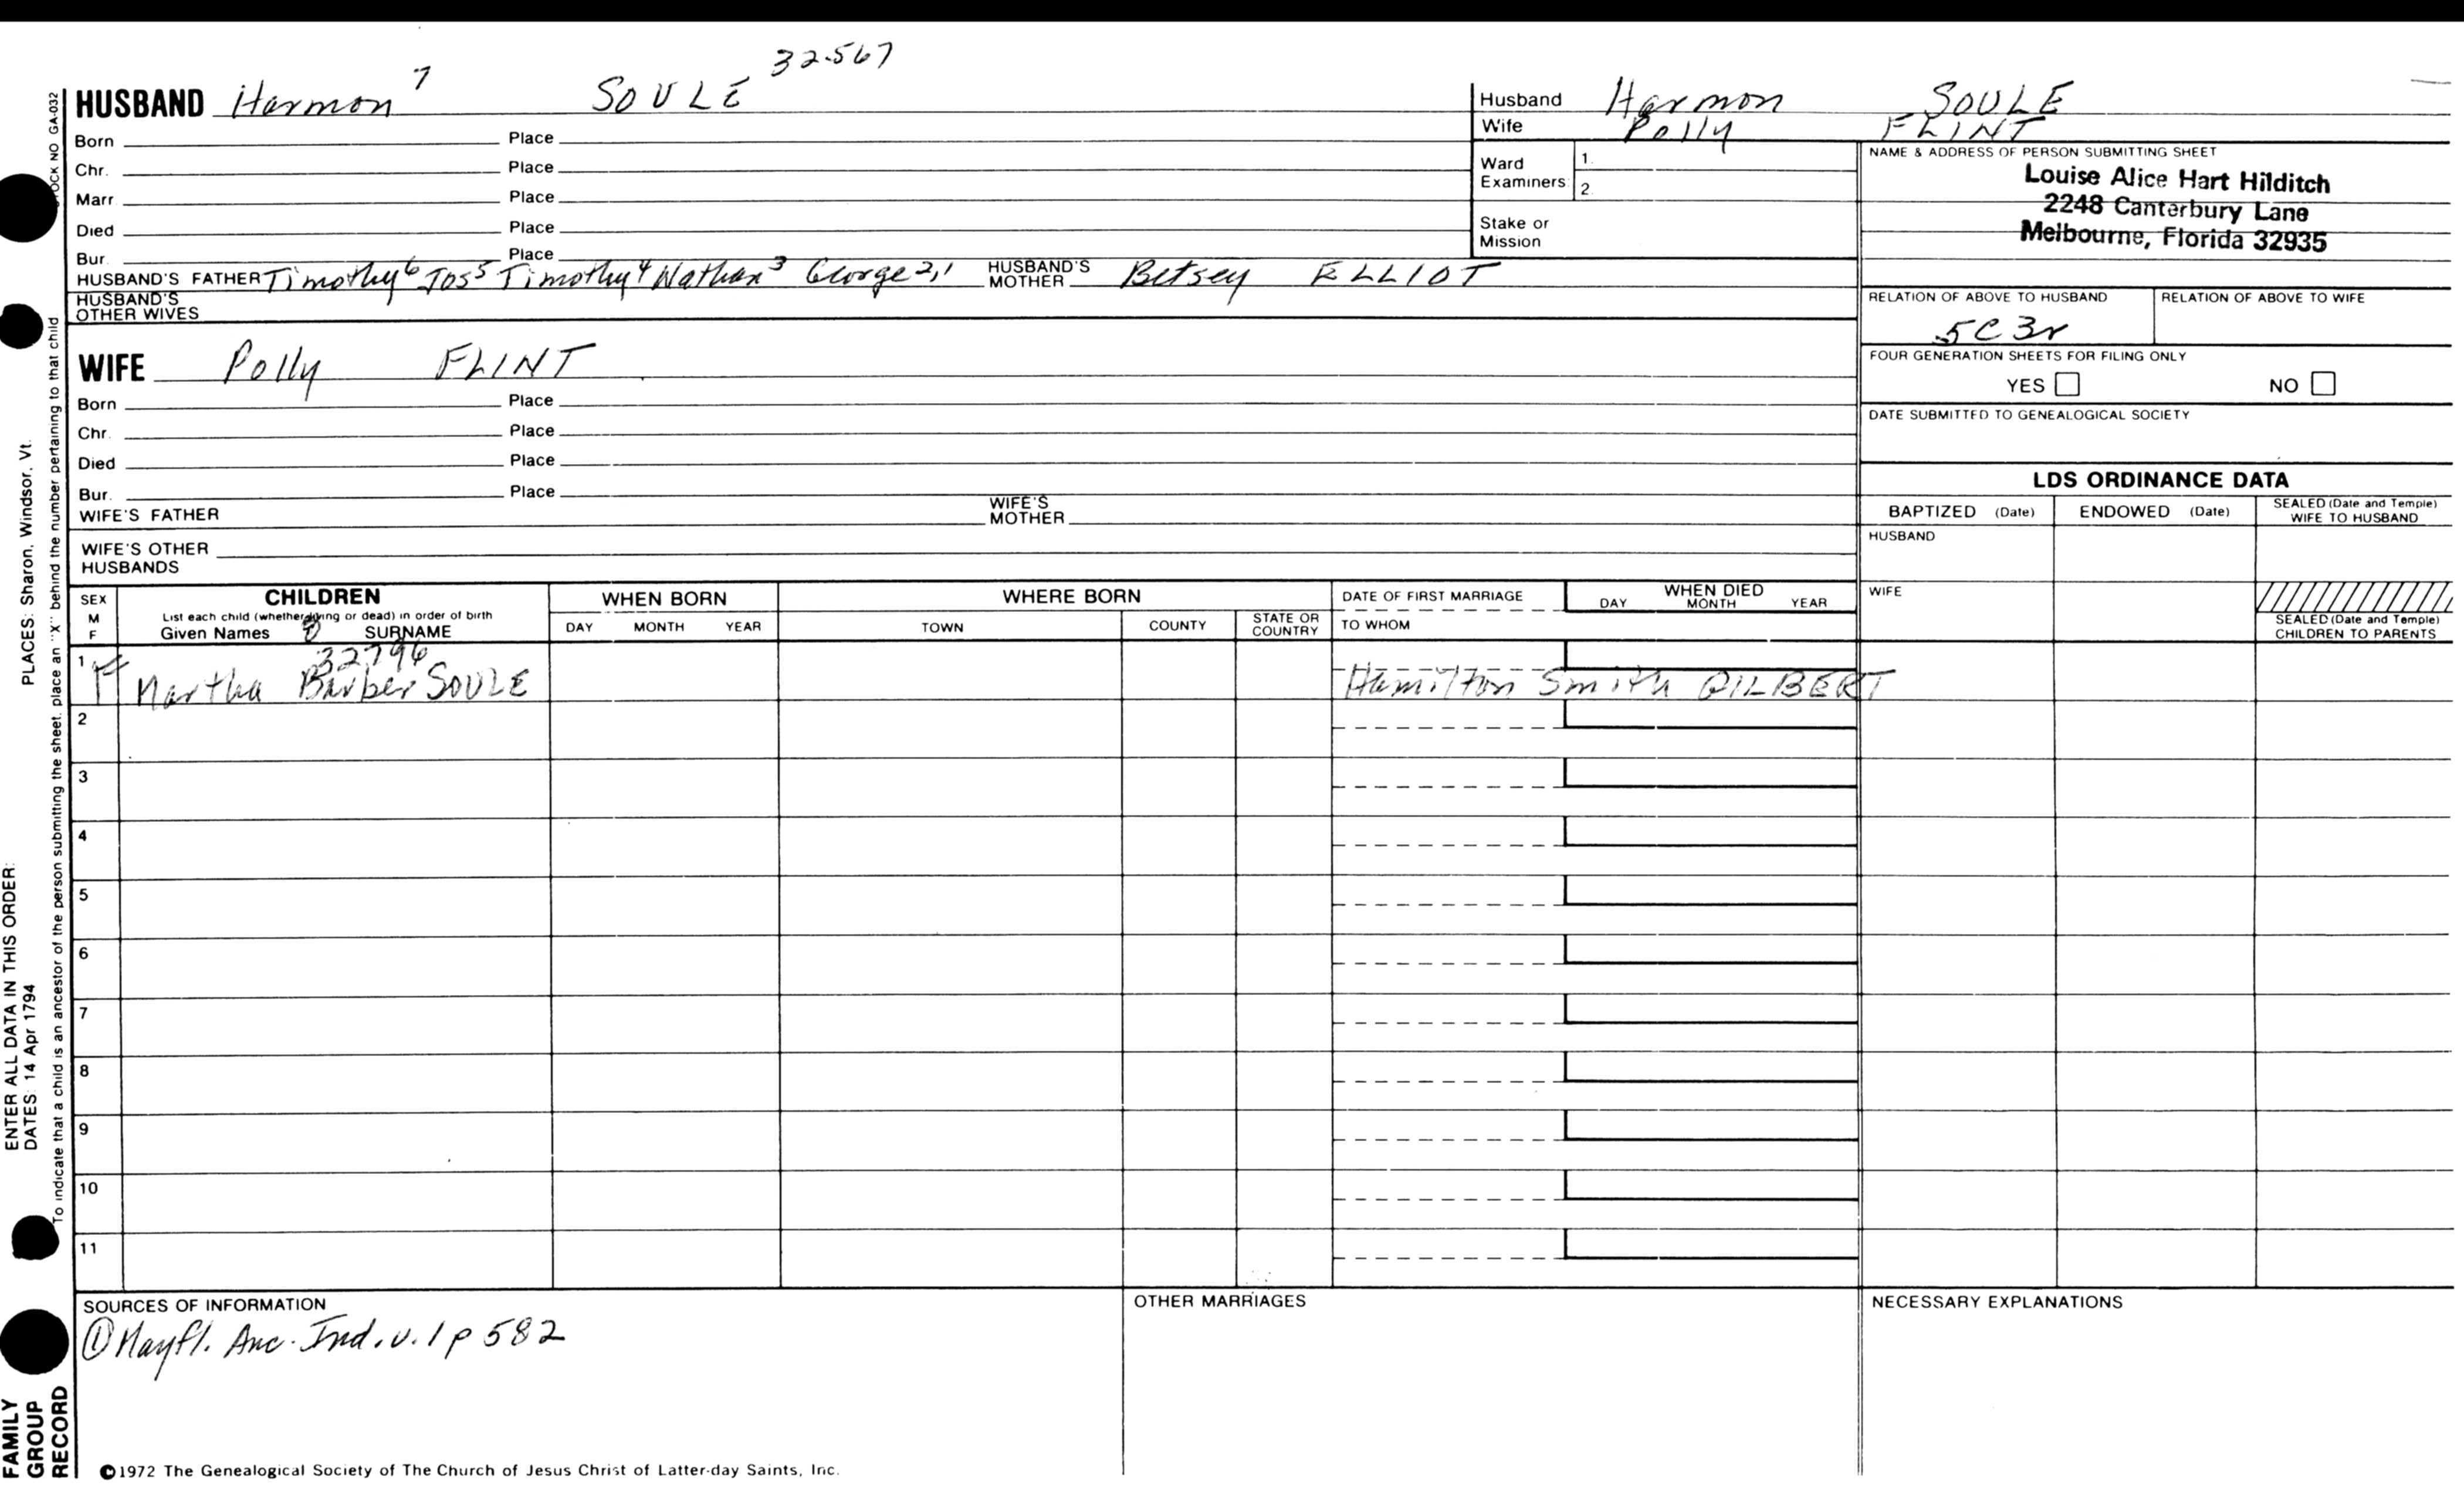 32567
HUSBAND Harmon 7 SOULE
Born Place
Chr. Place
Marr. Place
Died Place
Bur. Place
HUSBAND'S FATHER Timothy6 Jos5 Timothy4 Nathan3 George2,1 HUSBAND'S MOTHER Betsey ELLIOT
HUSBAND'S OTHER WIVES
WIFE Polly FLINT
Born Place
Chr. Place
Died Place
Bur. Place
WIFE'S FATHER WIFE'S MOTHER
WIFE'S OTHER HUSBANDS
Husband Harmon SOULE
Wife Polly FLINT
Ward Examiners 1. 2.
Stake or Mission
NAME & ADDRESS OF PERSON SUBMITTING SHEET
Louise Alice Hart Hilditch
2248 Canterbury Lane
Melbourne, Florida 32935
RELATION OF ABOVE TO HUSBAND RELATION OF ABOVE TO WIFE
5C3r
FOUR GENERATION SHEETS FOR FILING ONLY
YES NO
DATE SUBMITTED TO GENEALOGICAL SOCIETY
LDS ORDINANCE DATA
BAPTIZED (Date) ENDOWED (Date) SEALED (Date and Temple) WIFE TO HUSBAND
HUSBAND
WIFE
SEALED (Date and Temple) CHILDREN TO PARENTS
SEX M F
CHILDREN
List each child (whether living or dead) in order of birth
Given Names 8 SURNAME
WHEN BORN
DAY MONTH YEAR
WHERE BORN
TOWN COUNTY STATE OR COUNTRY
DATE OF FIRST MARRIAGE
TO WHOM
WHEN DIED
DAY MONTH YEAR
32796
1 F Martha Barber SOULE Hamilton Smith GILBERT
2
3
4
5
6
7
8
9
10
11
SOURCES OF INFORMATION
① Mayfl. Anc. Ind. v. 1 p 582
OTHER MARRIAGES
NECESSARY EXPLANATIONS
©1972 The Genealogical Society of The Church of Jesus Christ of Latter-day Saints, Inc.
FAMILY GROUP RECORD
ENTER ALL DATA IN THIS ORDER:
DATES: 14 Apr 1794
PLACES: Sharon, Windsor, Vt.
To indicate that a child is an ancestor of the person submitting the sheet, place an "X" behind the number pertaining to that child
OCK NO GA-032